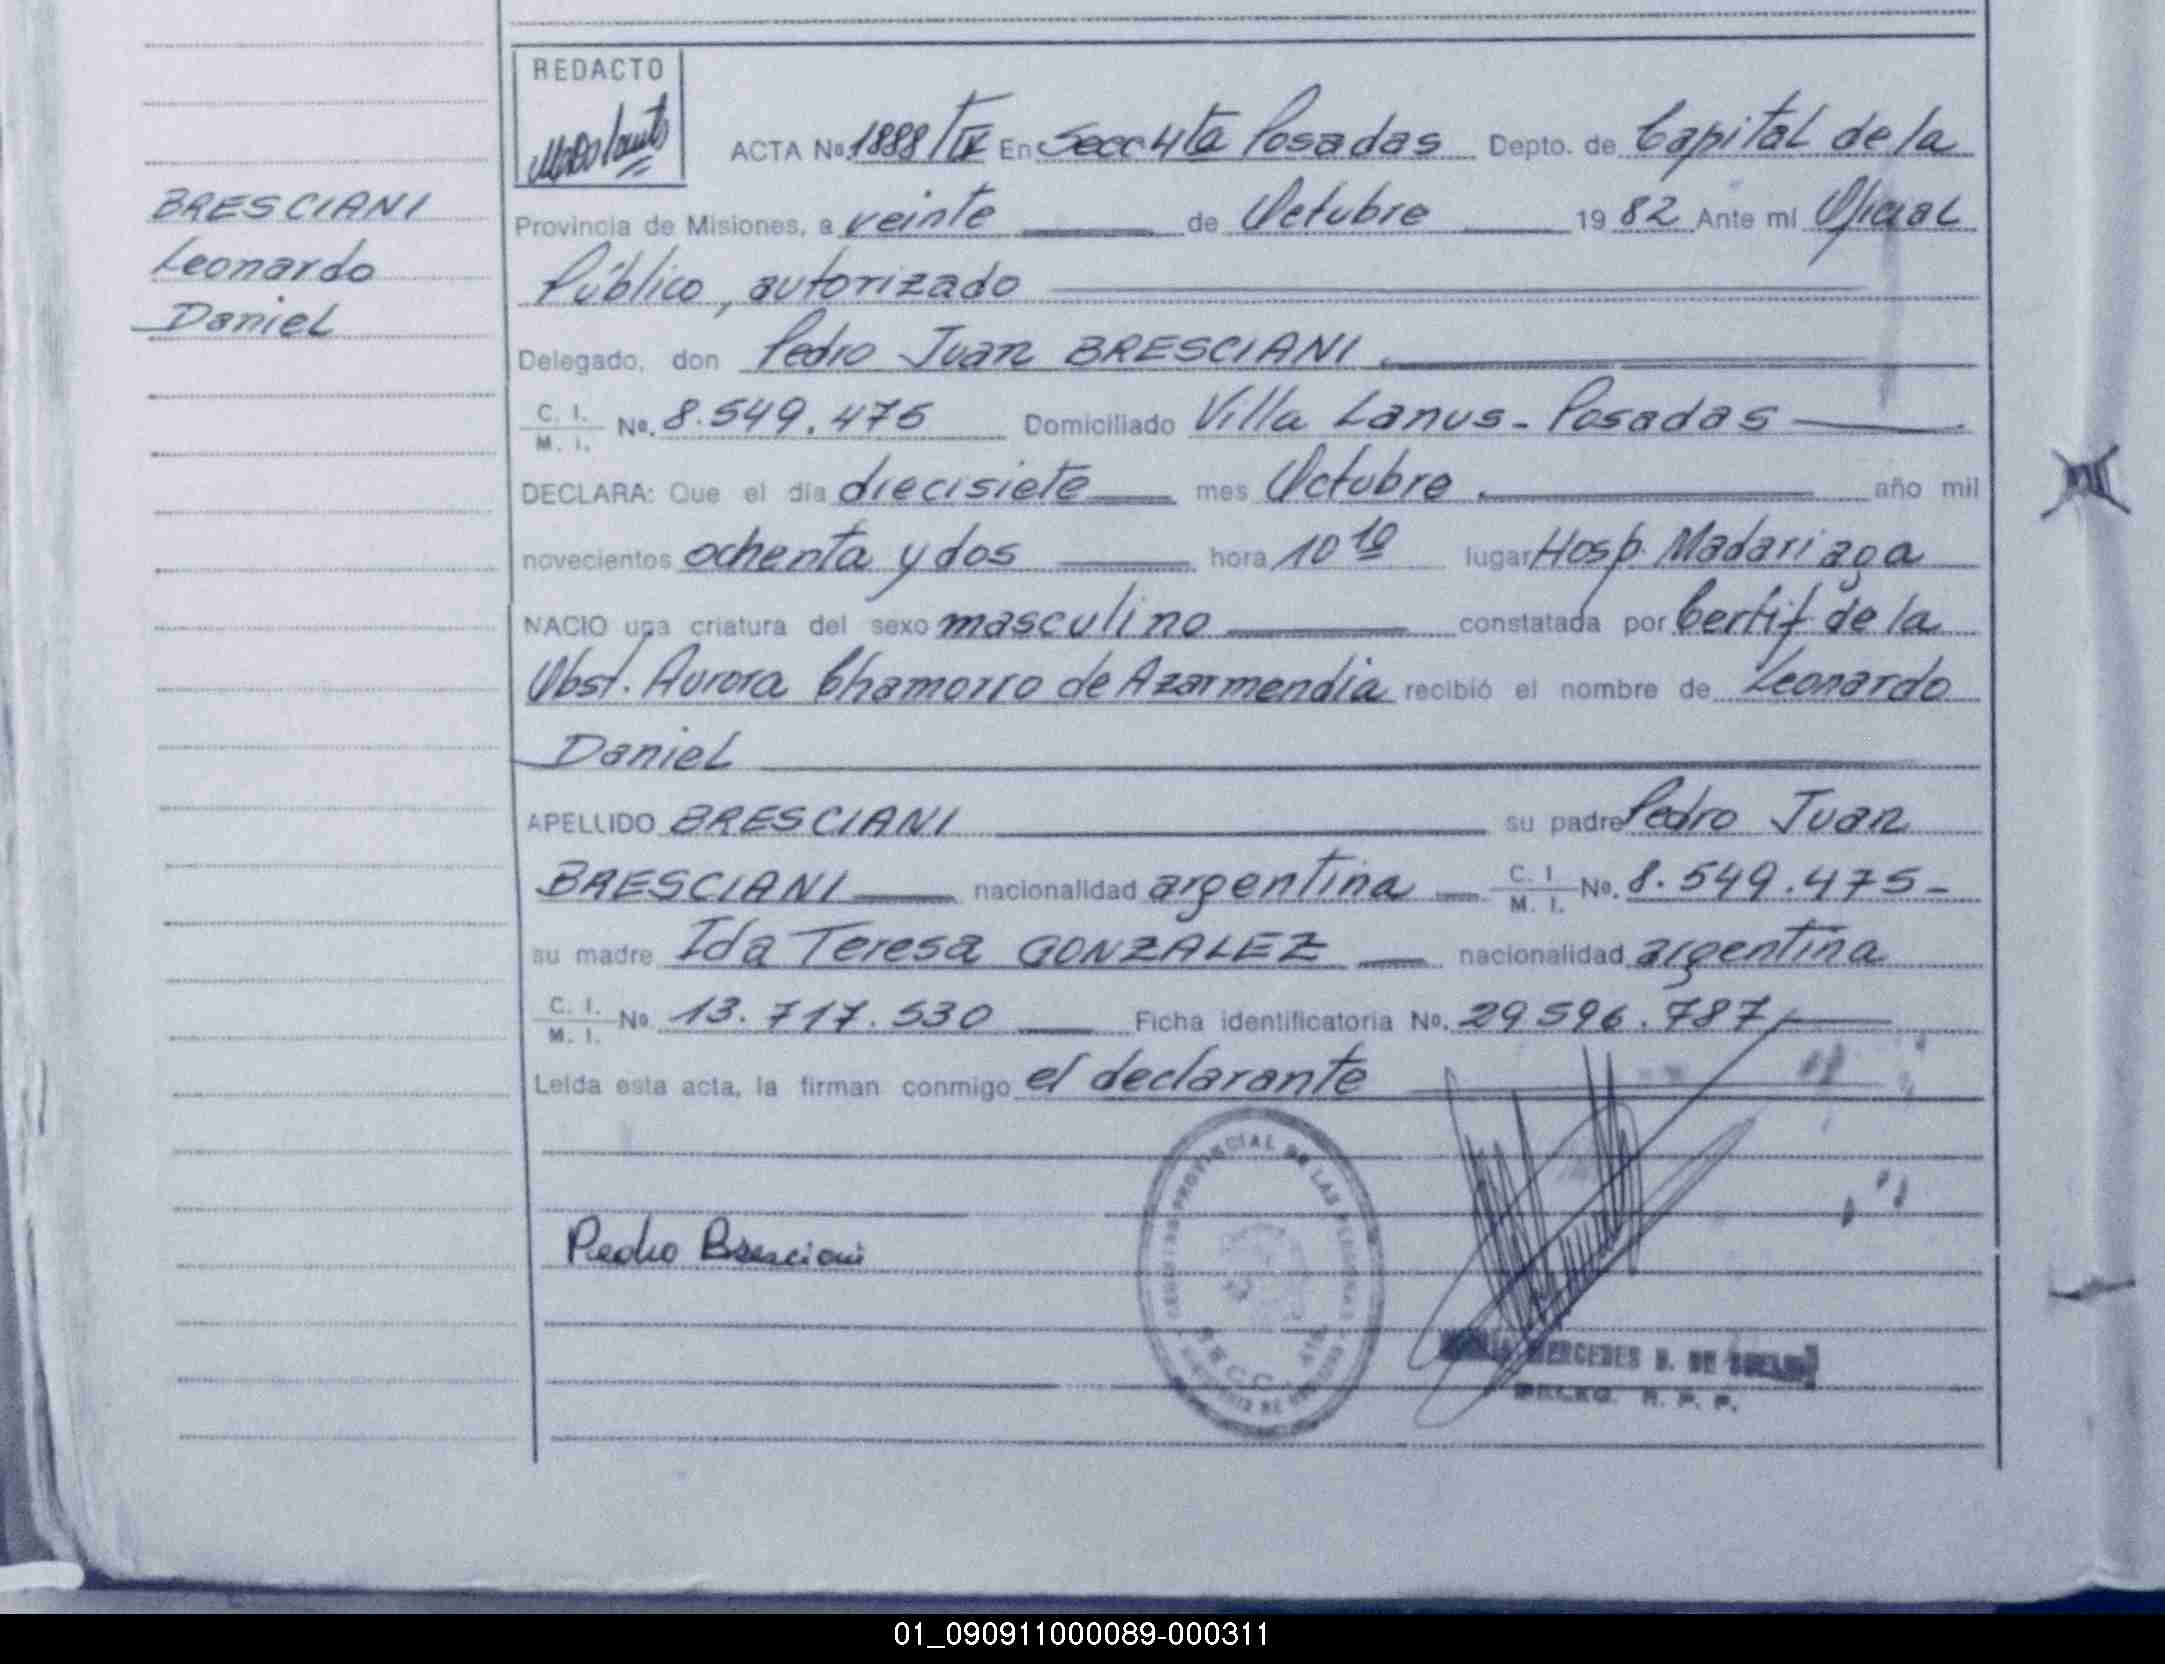 REDACTO
ACTA No. 1888/IV En Secc 4ta Posadas Depto. de Capital de la
BRESCIANI
Leonardo
Daniel
Provincia de Misiones, a veinte de Octubre 1982 Ante mí Oficial
Público, autorizado
Delegado, don Pedro Juan BRESCIANI
C. I. M. I. No. 8.549.475 Domiciliado Villa Lanus - Posadas
DECLARA: Que el día diecisiete mes Octubre año mil
novecientos ochenta y dos hora 10 10 lugar Hosp. Madariaga
NACIO una criatura del sexo masculino constatada por Certif de la
Obst. Aurora Chamorro de Azarmendia recibió el nombre de Leonardo
Daniel
APELLIDO BRESCIANI su padre Pedro Juan
BRESCIANI nacionalidad argentina C. I. M. I. No. 8.549.475-
su madre Ida Teresa GONZALEZ nacionalidad argentina
C. I. M. I. No. 13.717.530 Ficha identificatoria No. 29596.787
Leída esta acta, la firman conmigo el declarante
PROVINCIAL DE LAS PERSONAS
SECC. 4ta
Pedro Bresciani
MERCEDES
R. P. P.
01_090911000089-000311